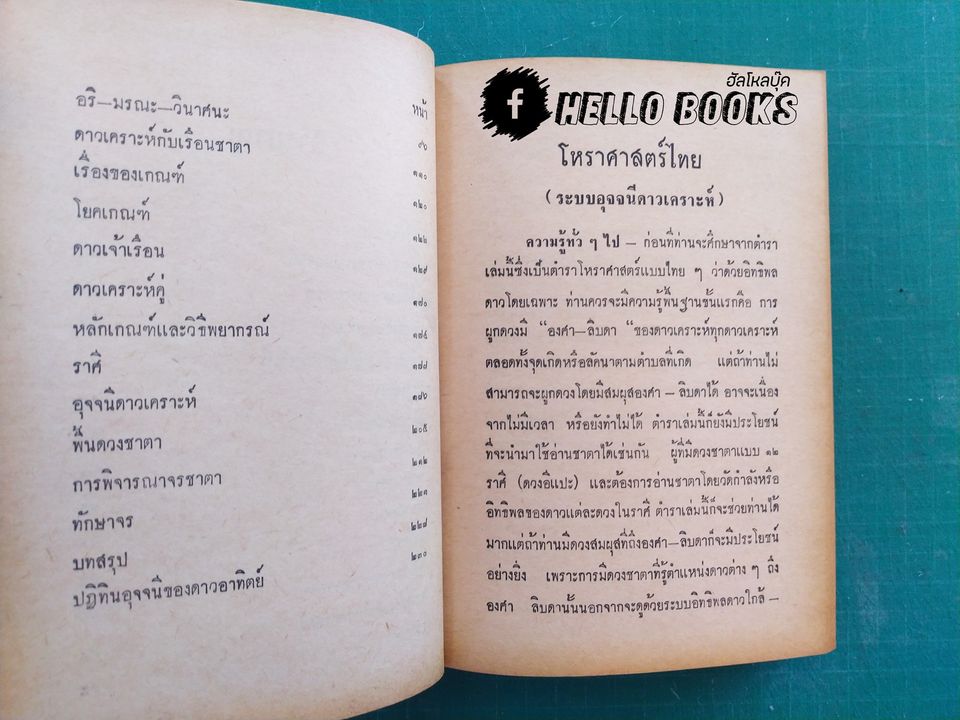 อริ—มรณะ—วินาศนะ
หน้า
ดาวเคราะห์กับเรือนชาตา ๙๖
เรื่องของเกณฑ์ ๑๑๐
โยคเกณฑ์ ๑๒๐
ดาวเจ้าเรือน ๑๒๒
ดาวเคราะห์คู่ ๑๒๙
หลักเกณฑ์และวิธีพยากรณ์ ๑๗๐
ราศี ๑๗๕
อุจจนีดาวเคราะห์ ๑๗๘
พื้นดวงชาตา ๑๘๖
การพิจารณาจรชาตา ๒๐๕
ทักษาจร ๒๑๒
บทสรุป ๒๒๑
ปฏิทินอุจจนีของดาวอาทิตย์ ๒๒๘
๒๓๐
ฮัลโหลบุ๊ค
f HELLO BOOKS
โหราศาสตร์ไทย
(ระบบอุจจนีดาวเคราะห์)
ความรู้ทั่ว ๆ ไป — ก่อนที่ท่านจะศึกษาจากตำรา
เล่มนี้ซึ่งเป็นตำราโหราศาสตร์แบบไทย ๆ ว่าด้วยอิทธิพล
ดาวโดยเฉพาะ ท่านควรจะมีความรู้พื้นฐานชั้นแรกคือ การ
ผูกดวงมี “องศา—ลิบดา “ของดาวเคราะห์ทุกดาวเคราะห์
ตลอดทั้งจุดเกิดหรือลัคนาตามตำบลที่เกิด แต่ถ้าท่านไม่
สามารถจะผูกดวงโดยมีสมผุสองศา — ลิบดาได้ อาจจะเนื่อง
จากไม่มีเวลา หรือยังทำไม่ได้ ตำราเล่มนี้ก็ยังมีประโยชน์
ที่จะนำมาใช้อ่านชาตาได้เช่นกัน ผู้ที่มีดวงชาตาแบบ ๑๒
ราศี (ดวงอีแปะ) และต้องการอ่านชาตาโดยวัดกำลังหรือ
อิทธิพลของดาวแต่ละดวงในราศี ตำราเล่มนี้ก็จะช่วยท่านได้
มากแต่ถ้าท่านมีดวงสมผุสที่ถึงองศา—ลิบดาก็จะมีประโยชน์
อย่างยิ่ง เพราะการมีดวงชาตาที่รู้ตำแหน่งดาวต่าง ๆ ถึง
องศา ลิบดานั้นนอกจากจะดูด้วยระบบอิทธิพลดาวใกล้ —